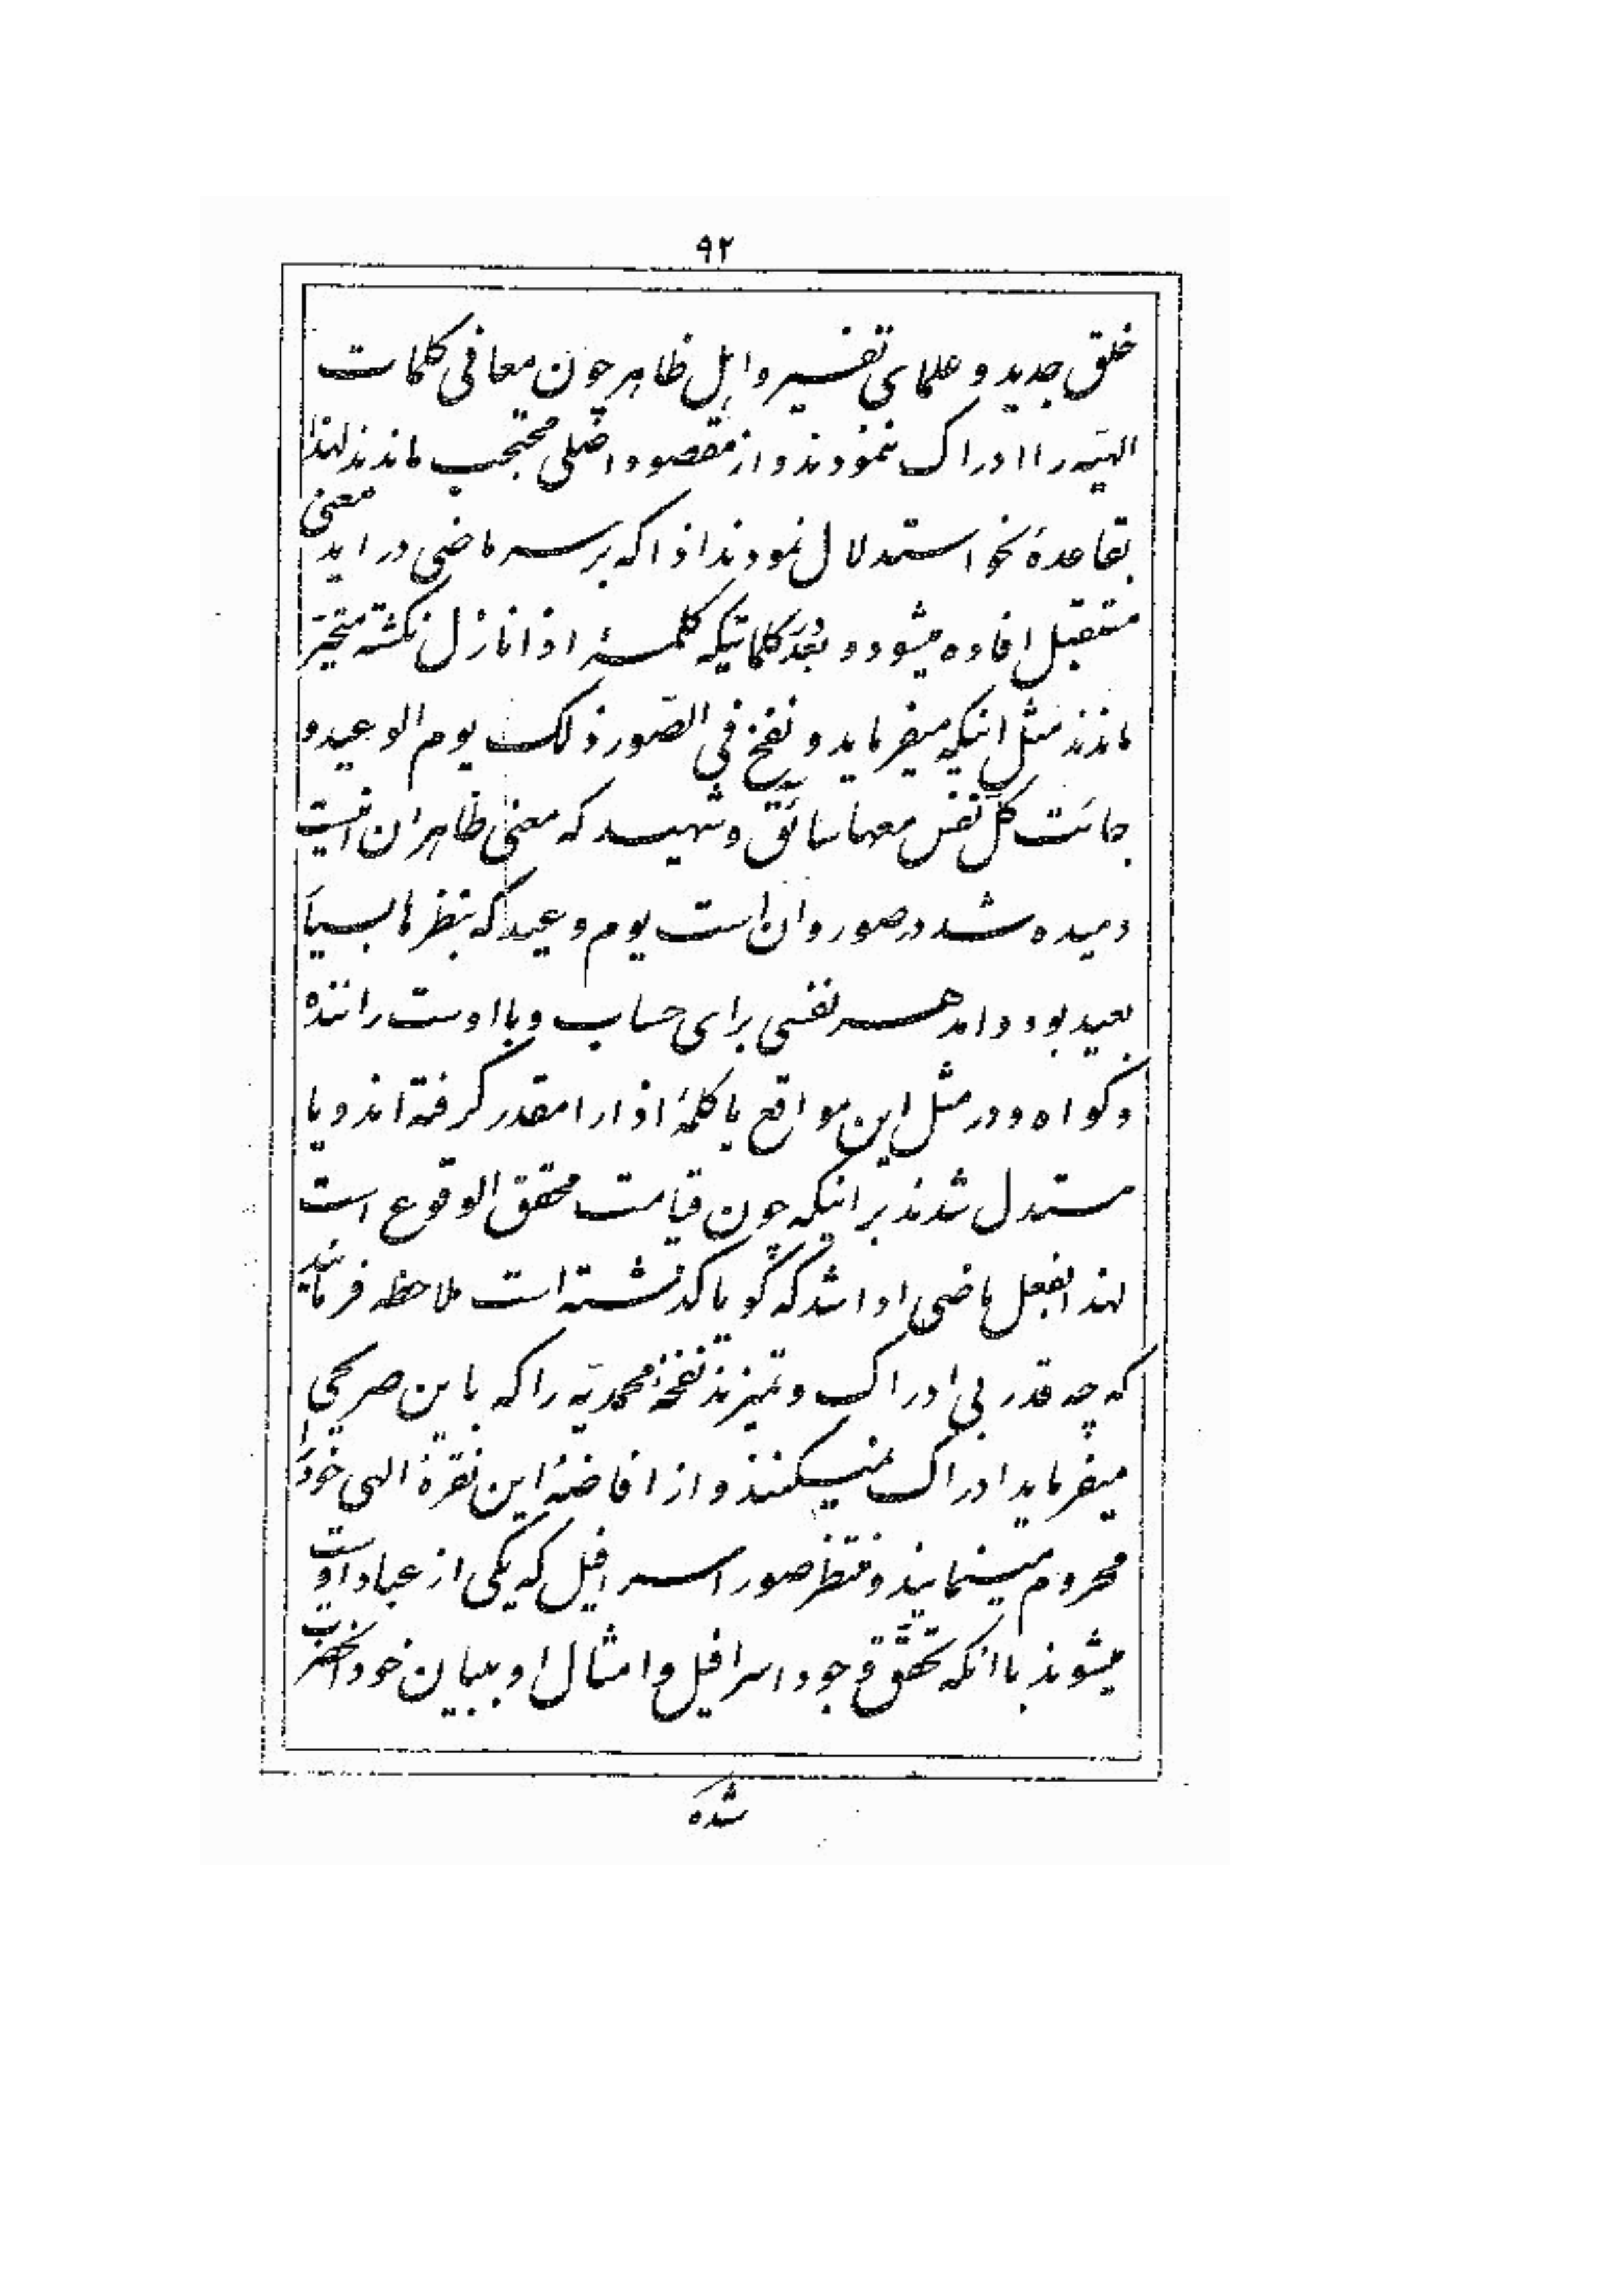 ۹۲
خلق جدید و علمای تفسیر و اهل ظاهر چون معانی کلمات
الهیّه را ادراک ننمودند و از مقصود اصلی محتجب ماندند لهذا
بقاعدهٔ نحو استدلال نمودند اذا که بر سر ماضی در اید معنی
مستقبل افاده میشود و بعد در کلماتیکه کلمهٔ اذا نازل نگشته متحیّر
ماندند مثل اینکه میفرماید و نفخ فی الصّور ذلک یوم الوعید و
جائت کلّ نفس معها سائق و شهید که معنی ظاهر ان اینست
دمیده شد در صور و ان است یوم وعید که بنظرها بسیار
بعید بود و امد هر نفسی برای حساب و با اوست راننده
و گواه و در مثل این مواقع یا کلمهٔ اذا را مقدر گرفته اند و یا
مستدل شدند بر اینکه چون قیامت محقق الوقوع است
لهذا بفعل ماضی ادا شد که گویا گذشته است ملاحظه فرمائید
که چه قدر بی ادراک و تمیزند نفخهٔ محمدیّه را که باین صریحی
میفرماید ادراک نمیکنند و از افاضهٔ این نقرهٔ الهی خود را
محروم مینمایند و منتظر صور اسرافیل که یکی از عباد اوست
میشوند با انکه تحقّق وجود اسرافیل و امثال او ببیان خود انحضرت
شده